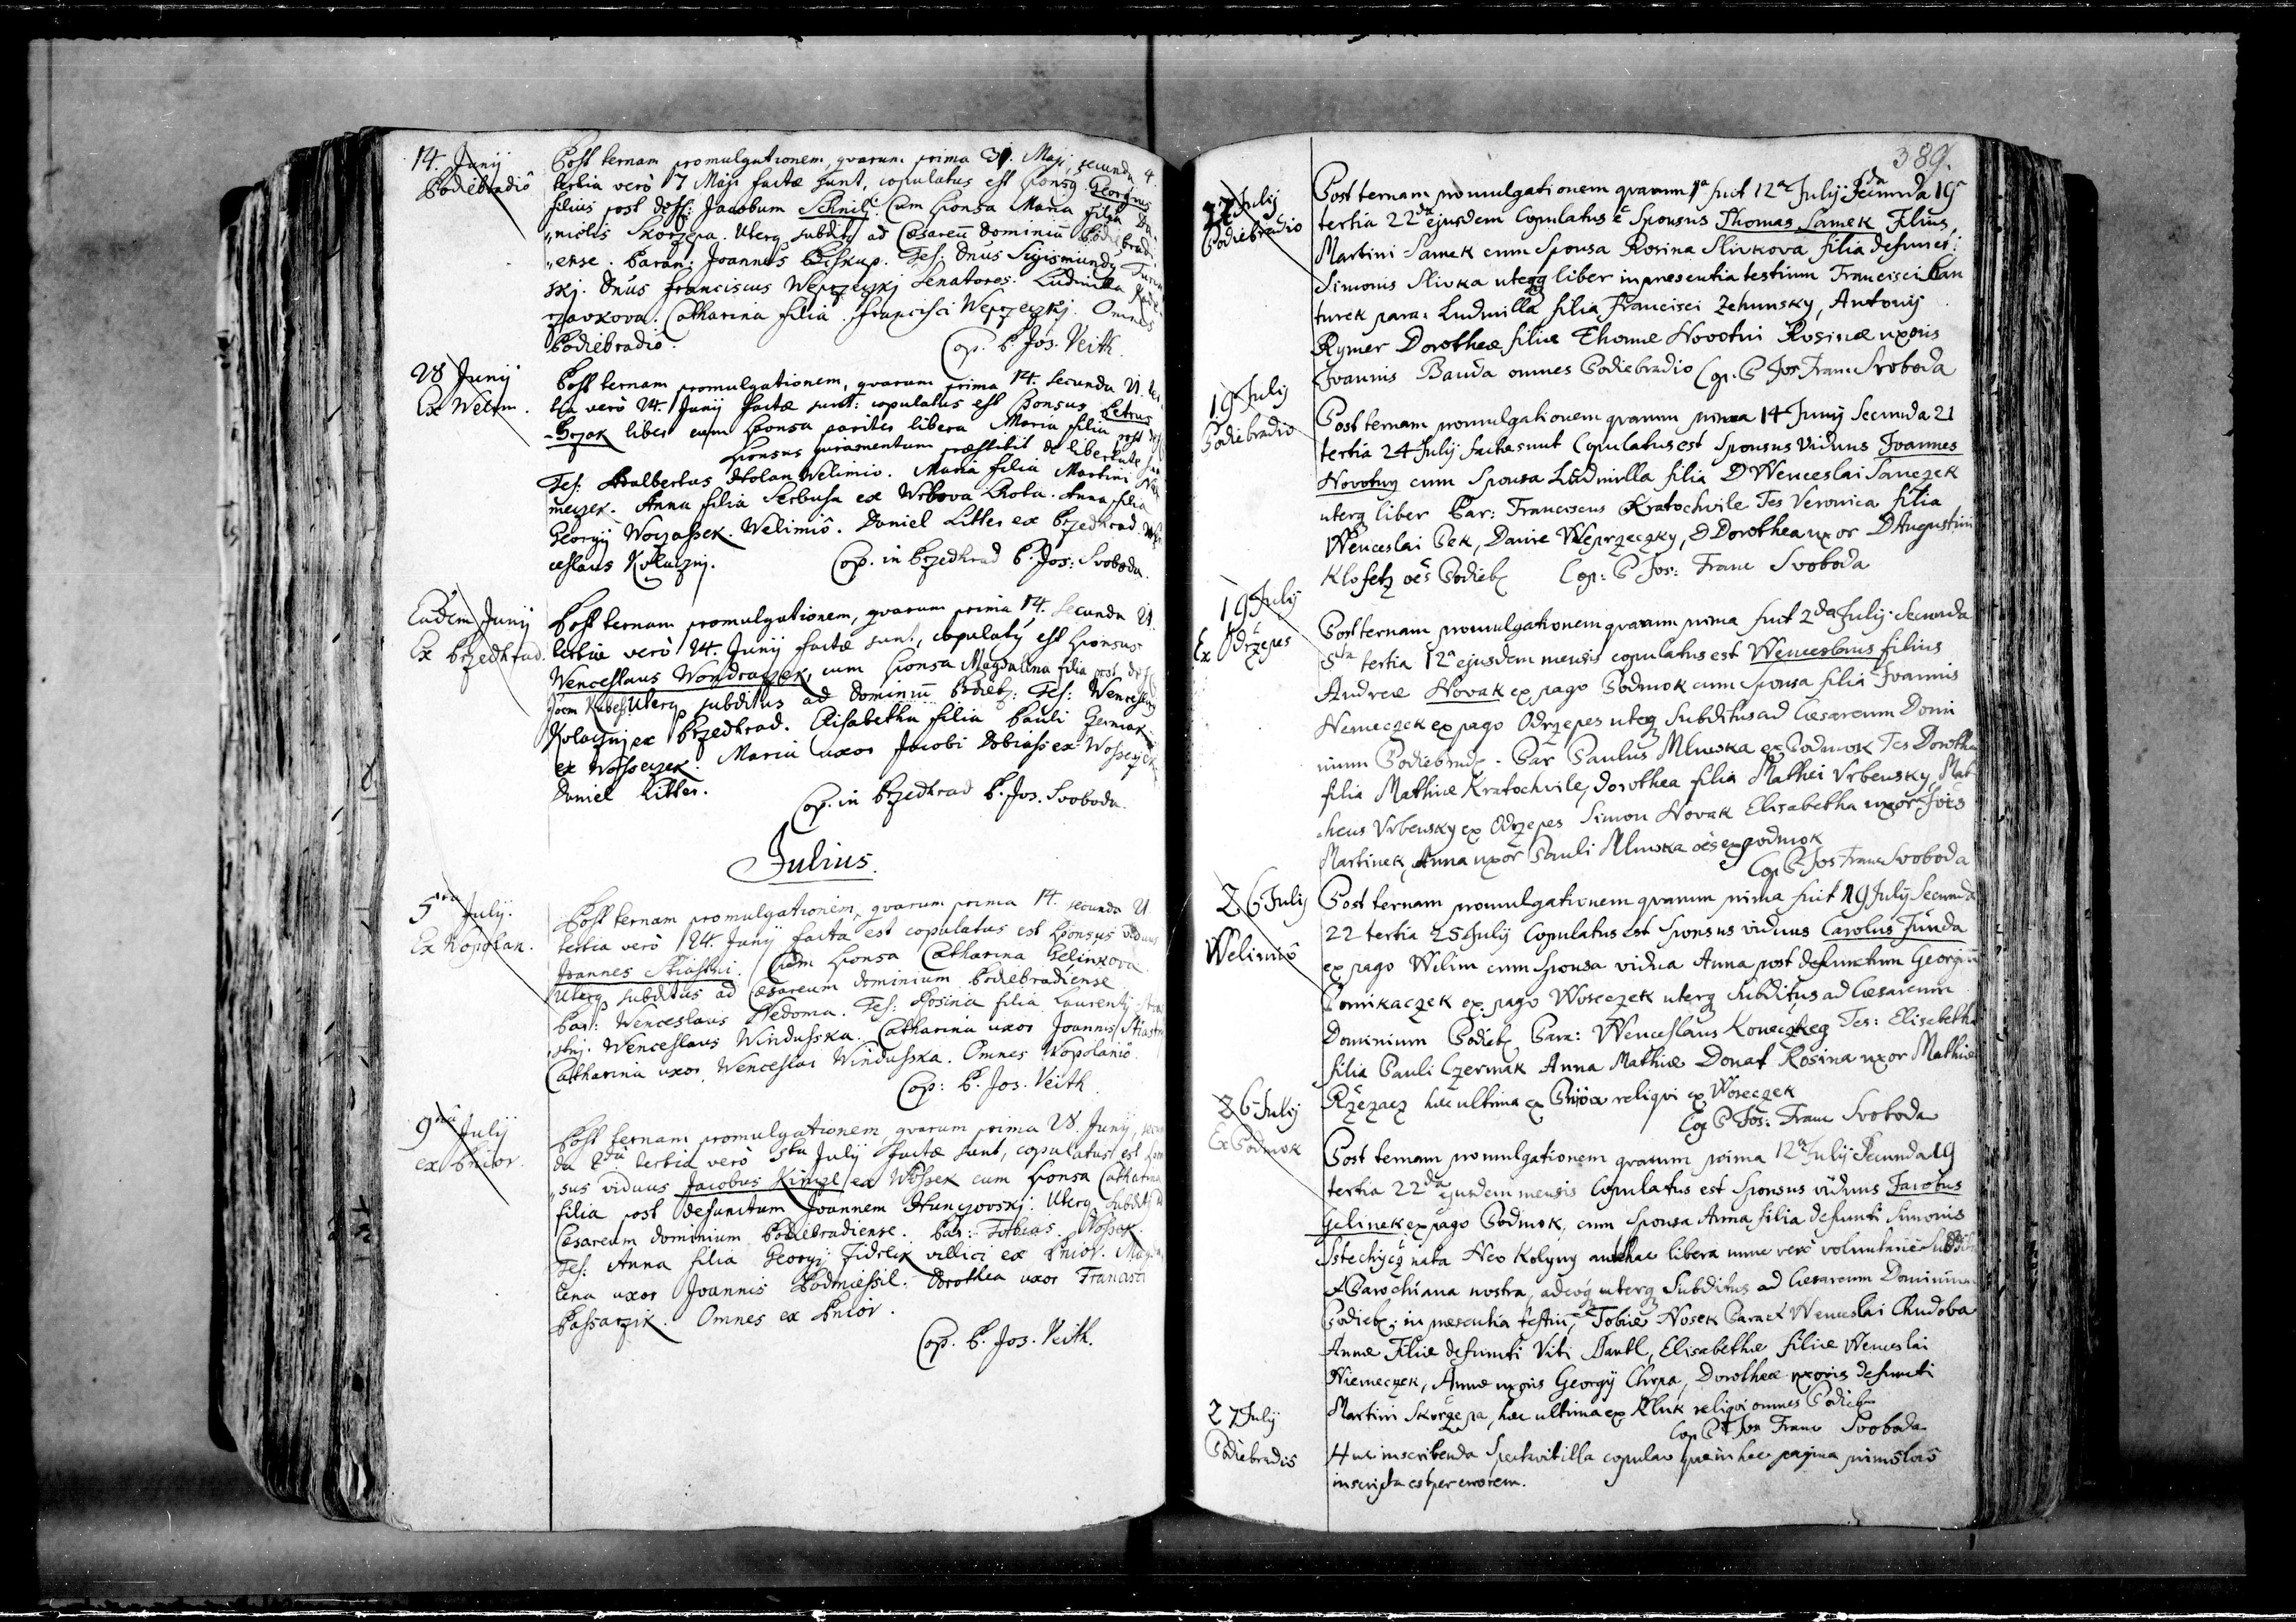 14. Junij
Podiebradio
Post ternam promulgationem, qvarum prima 31. Maji, secunda 4.
tertia verò 7 Maji factæ sunt, copulatus est sponsq Georgius
filius post deff: Jacobum Schnitz. Cum sponsa Maria filia Da-
"nielis Skorzepa. Uterq subditq ad Cæsareū dominiū Podiebradi-
"ense. Paran: Joannes Biskup. Tes: Dnus Sigismundq
skj. Dnus Franciscus Weprzeczkj Senatores. Ludmilla
rzavkova. Catharina filia Francisci Weprzeczkj. Omnes
Podiebradio.
Cop. P. Jos. Veith.
28 Junij
Ex Welim.
Post ternam promulgationem, qvarum prima 14. secunda 21. ter-
tia verò 24. Junij factæ sunt: copulatus est sponsus Petrus
liber cum sponsa pariter libera Maria filia post deff
sponsus juramentum præstitit de libertate sua
Tes: Adalbertus Holan Welimio. Maria filia Martini
meczek. Anna filia Serbusa ex Wrbova Lhota. Anna filia
Georgij Woczassek. Welimiô. Daniel Litter ex Przedhrad. Wen-
ceslaus Kollaczny.
Cop. in Przedhrad P. Jos: Svoboda.
Eadem Junij
Ex Przedhrad.
Post ternam promulgationem, qvarum prima 14. secunda 21.
tertia verò 24. Junij factæ sunt, copulatq est sponsus
Wenceslaus Wondraczek, cum sponsa Magdalena filia post deff
Joem Kubess Uterq subditus ad dominiū Podieb: Tes: Wenceslaus
Kolaczny ex Przedhrad. Elisabetha filia Pauli Czermak
ex Wosseczek. Maria uxor Jacobi Tobiass ex Wosseczek
Daniel Litter.
Cop. in Przedhrad P. Jos. Svoboda.
Julius.
5ta July.
Ex Kopolan.
Post ternam promulgationem, qvarum prima 14. secunda 21.
tertia verò 24. Junij facta est copulatus est sponsus viduus
Joannes Stiastni. Cum sponsa Catharina Gelinkova.
Uterq subditus ad Cæsareum dominium Podiebradiense
Par: Wenceslaus Nedoma. Tes: Rosina filia Laurentij
stnj. Wenceslaus Windusska. Catharina uxor Joannis Stiastni
Catharina uxor Wenceslai Windusska. Omnes Wopolaniô.
Cop: P. Jos. Veith.
9na July
ex Pnior.
Post ternam promulgationem, qvarum prima 28. Junij, secun-
da 2da tertia verò 5ta July factæ sunt, copulatus est spon-
"sus viduus Jacobus Kinzl ex Wossek cum sponsa Catharina
filia post defunctum Joannem Hunczovskj: Uterq subditq ad
Cæsareum dominium Podiebradiense. Par: Tobias Nossek.
Tes: Anna filia Georgij Fidrlik villici ex Pnior. Magda-
lena uxor Joannis Podmiessil. Dorothea uxor Francisci
Passaczik. Omnes ex Pnior.
Cop. P. Jos. Veith.
389.
27 July
Podiebradio
Post ternam promulgationem qvarum 1a fuit 12a July Secunda 19a
tertia 22da ejusdem Copulatus ē Sponsus Thomas Samek Filius
Martini Samek cum Sponsa Rosina Slivkova filia defuncti
Simonis Slivka uterq liber in presentia testium Francisci Kan
turek para: Ludmilla filia Francisci Zehunsky, Antonij
Rymer Dorotheæ filiæ Thomæ Novotni Rosinæ uxoris
Joannis Bauda omnes Podiebradio Cop. P Jos Franc Svoboda
19 July
Podiebradio
Post ternam promulgationem qvarum prima 14 Juny Secunda 21
tertia 24 July factæ sunt Copulatus est Sponsus Viduus Joannes
Novotny cum Sponsa Ludmilla filia D Wenceslai Sanczek
uterq liber Par: Franciscus Kratochvile Tes Veronica filia
Wenceslai Pek, Danie Weprzeczky, D Dorothea uxor D Augustini
Klofetz oēs Podieb Cop: P Jos: Franc Svoboda
19 July
Ex Odrzepes
Post ternam promulgationem qvarum prima fuit 2da July Secunda
5ta tertia 12a ejusdem mensis copulatus est Wenceslaus filius
Andreæ Novak ex pago Podmok cum Sponsa filia Joannis
Nemeczek ex pago Odrzepes uterq Subditus ad Cæsareum Domi
nium Podiebrad. Par Paulus Mluwka ex Podmok Tes Dorothea
filia Mathiæ Kratochvile, Dorothea filia Mathei Vrbensky, Mat
theus Vrbensky ex Odrzepes Simon Novak Elisabetha uxor Jois
Martinek, Anna uxor Pauli Mluwka oēs ex podmok
Cop P Jos Franc Svoboda
26 July
Welimiô
Post ternam promulgationem qvarum prima fuit 19 July Secunda
22 tertia 25 July Copulatus est Sponsus viduus Carolus Funda
ex pago Welim cum Sponsa vidua Anna post defunctum Georgiū
Pomikaczek ex pago Woseczek uterq Subditus ad Cæsareum
Dominium Podieb Para: Wenceslaus Koneczkeg Tes: Elisabetha
filia Pauli Czermak Anna Mathiæ Donat Rosina uxor Mathiæ
Rzezacz hæc ultima ex Pniov reliqvi ex Woseczek
Cop P Jos: Franc Svoboda
26 July
Ex Podmok
Post ternam promulgationem qvarum prima 12a July Secunda 19
tertia 22da ejusdem mensis Copulatus est Sponsus viduus Jacobus
Gelinek ex pago Podmok, cum Sponsa Anna filia defuncti Simonis
Stechycz nata Neo Kolyny antehac libera nunc vero voluntarie
Parochiana nostra, adeoq uterq Subditus ad Cæsareum Dominium
Podieb: in præsentia testiū, Tobiæ Nosek Paraē Wenceslai Chudoba
Annæ Filiæ defuncti Viti Bartl, Elisabethæ filiæ Wenceslai
Niemeczek, Annæ uxoris Georgij Chrpa, Dorotheæ uxoris defuncti
Martini Skorzepa, hæc ultima ex Kluk reliqvi omnes Podieb
Cop P Jos Franc Svoboda
27 July
Podiebradis
Huc inscribenda Spectavit illa copulao quæ in hac pagina primo loco
inscripta est per errorem.